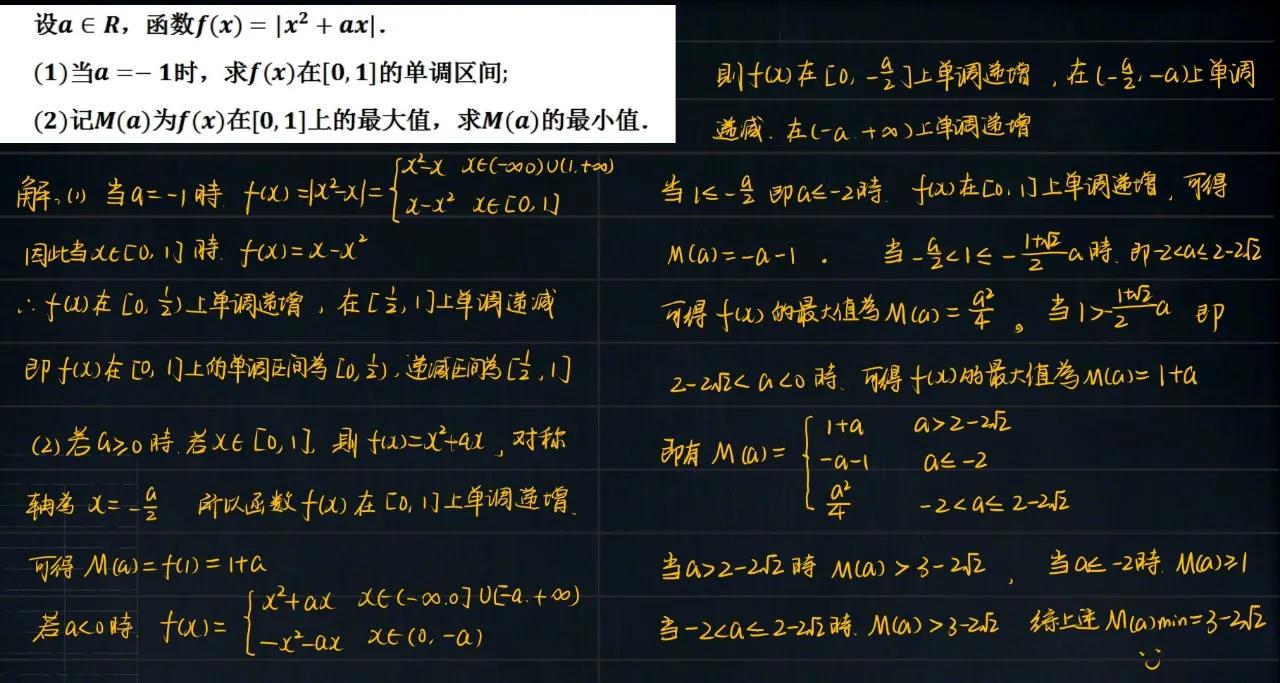 设a ∈ R，函数f(x) = |x² + ax|.
(1)当a =− 1时，求f(x)在[0, 1]的单调区间;
(2)记M(a)为f(x)在[0, 1]上的最大值，求M(a)的最小值.
解:(1) 当a=-1時. f(x)=|x²-x|={x²-x x∈(-∞0)∪(1,+∞)
x-x² x∈[0,1]
因此当x∈[0,1]時. f(x)=x-x²
∴f(x)在[0,½)上单调递增，在[½,1]上单调递减
即f(x)在[0,1]上的单调区间為[0,½), 递减区间為[½,1]
(2)若a≥0時.若x∈[0,1], 則f(x)=x²+ax, 对称
轴為 x=-a/2 所以函数f(x)在[0,1]上单调递增.
可得M(a)=f(1)=1+a
若a<0時. f(x)={x²+ax x∈(-∞.0]∪[-a.+∞)
-x²-ax x∈(0,-a)
則f(x)在[0,-a/2]上单调递增，在(-a/2,-a)上单调
递减. 在(-a.+∞)上单调递增
当1≤-a/2 即a≤-2時. f(x)在[0,1]上单调递增, 可得
M(a)=-a-1. 当-a/2<1≤-(1+√2)/2 a時. 即-2<a≤2-2√2
可得f(x)的最大值為M(a)=a²/4。当1>-(1+√2)/2 a 即
2-2√2<a<0時. 可得f(x)的最大值為M(a)=1+a
即有M(a)={1+a a>2-2√2
-a-1 a≤-2
a²/4 -2<a≤2-2√2
当a>2-2√2時 M(a)>3-2√2, 当a≤-2時. M(a)≥1
当-2<a≤2-2√2時. M(a)>3-2√2 综上述M(a)min=3-2√2